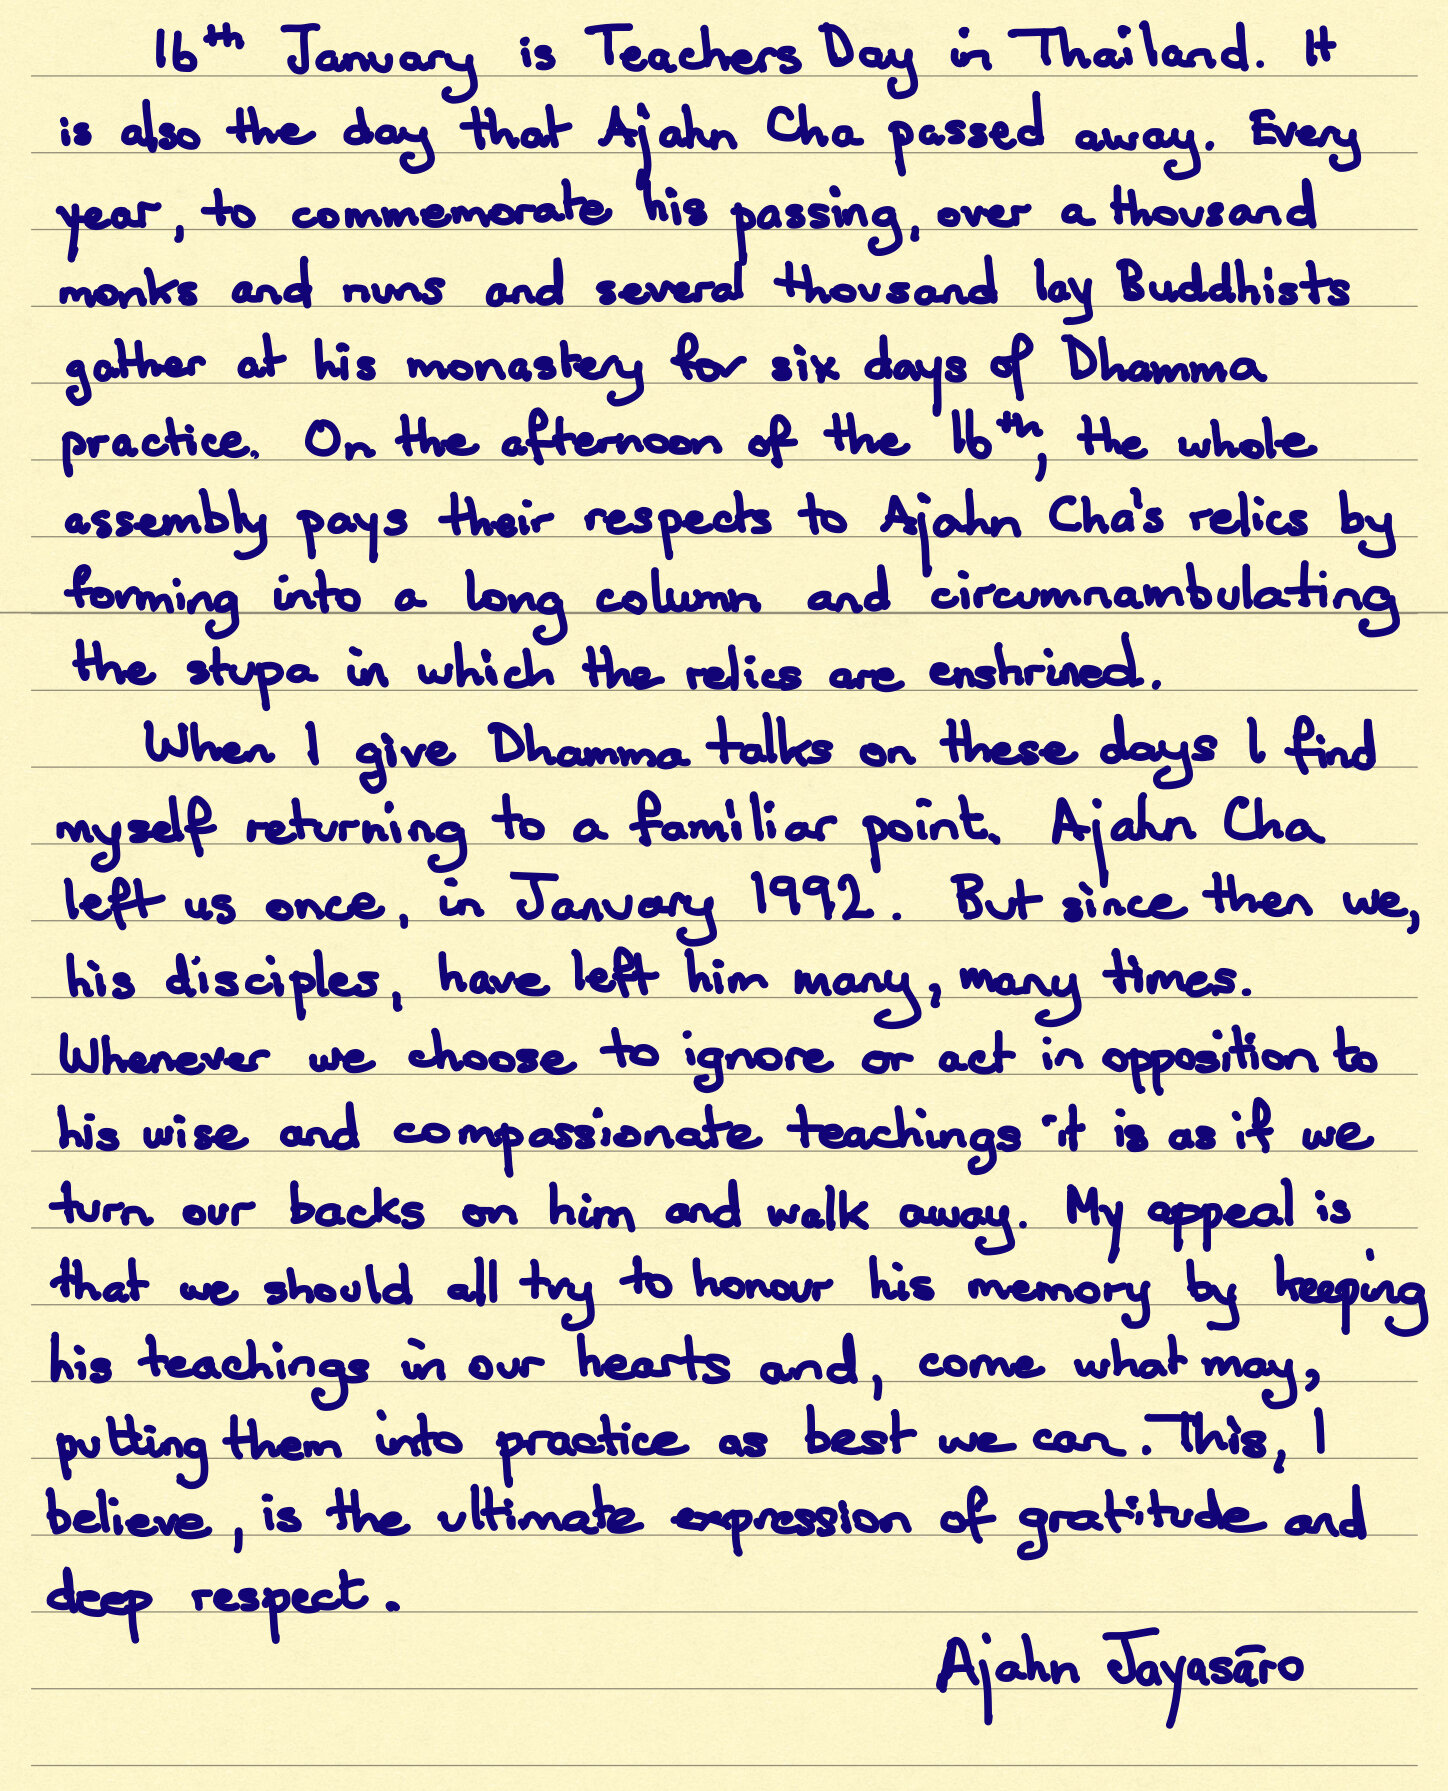 16th January is Teachers Day in Thailand. It
is also the day that Ajahn Cha passed away. Every
year, to commemorate his passing, over a thousand
monks and nuns and several thousand lay Buddhists
gather at his monastery for six days of Dhamma
practice. On the afternoon of the 16th, the whole
assembly pays their respects to Ajahn Cha's relics by
forming into a long column and circumnambulating
the stupa in which the relics are enshrined.
When I give Dhamma talks on these days I find
myself returning to a familiar point. Ajahn Cha
left us once, in January 1992. But since then we,
his disciples, have left him many, many times.
Whenever we choose to ignore or act in opposition to
his wise and compassionate teachings it is as if we
turn our backs on him and walk away. My appeal is
that we should all try to honour his memory by keeping
his teachings in our hearts and, come what may,
putting them into practice as best we can. This, I
believe, is the ultimate expression of gratitude and
deep respect.
Ajahn Jayasāro